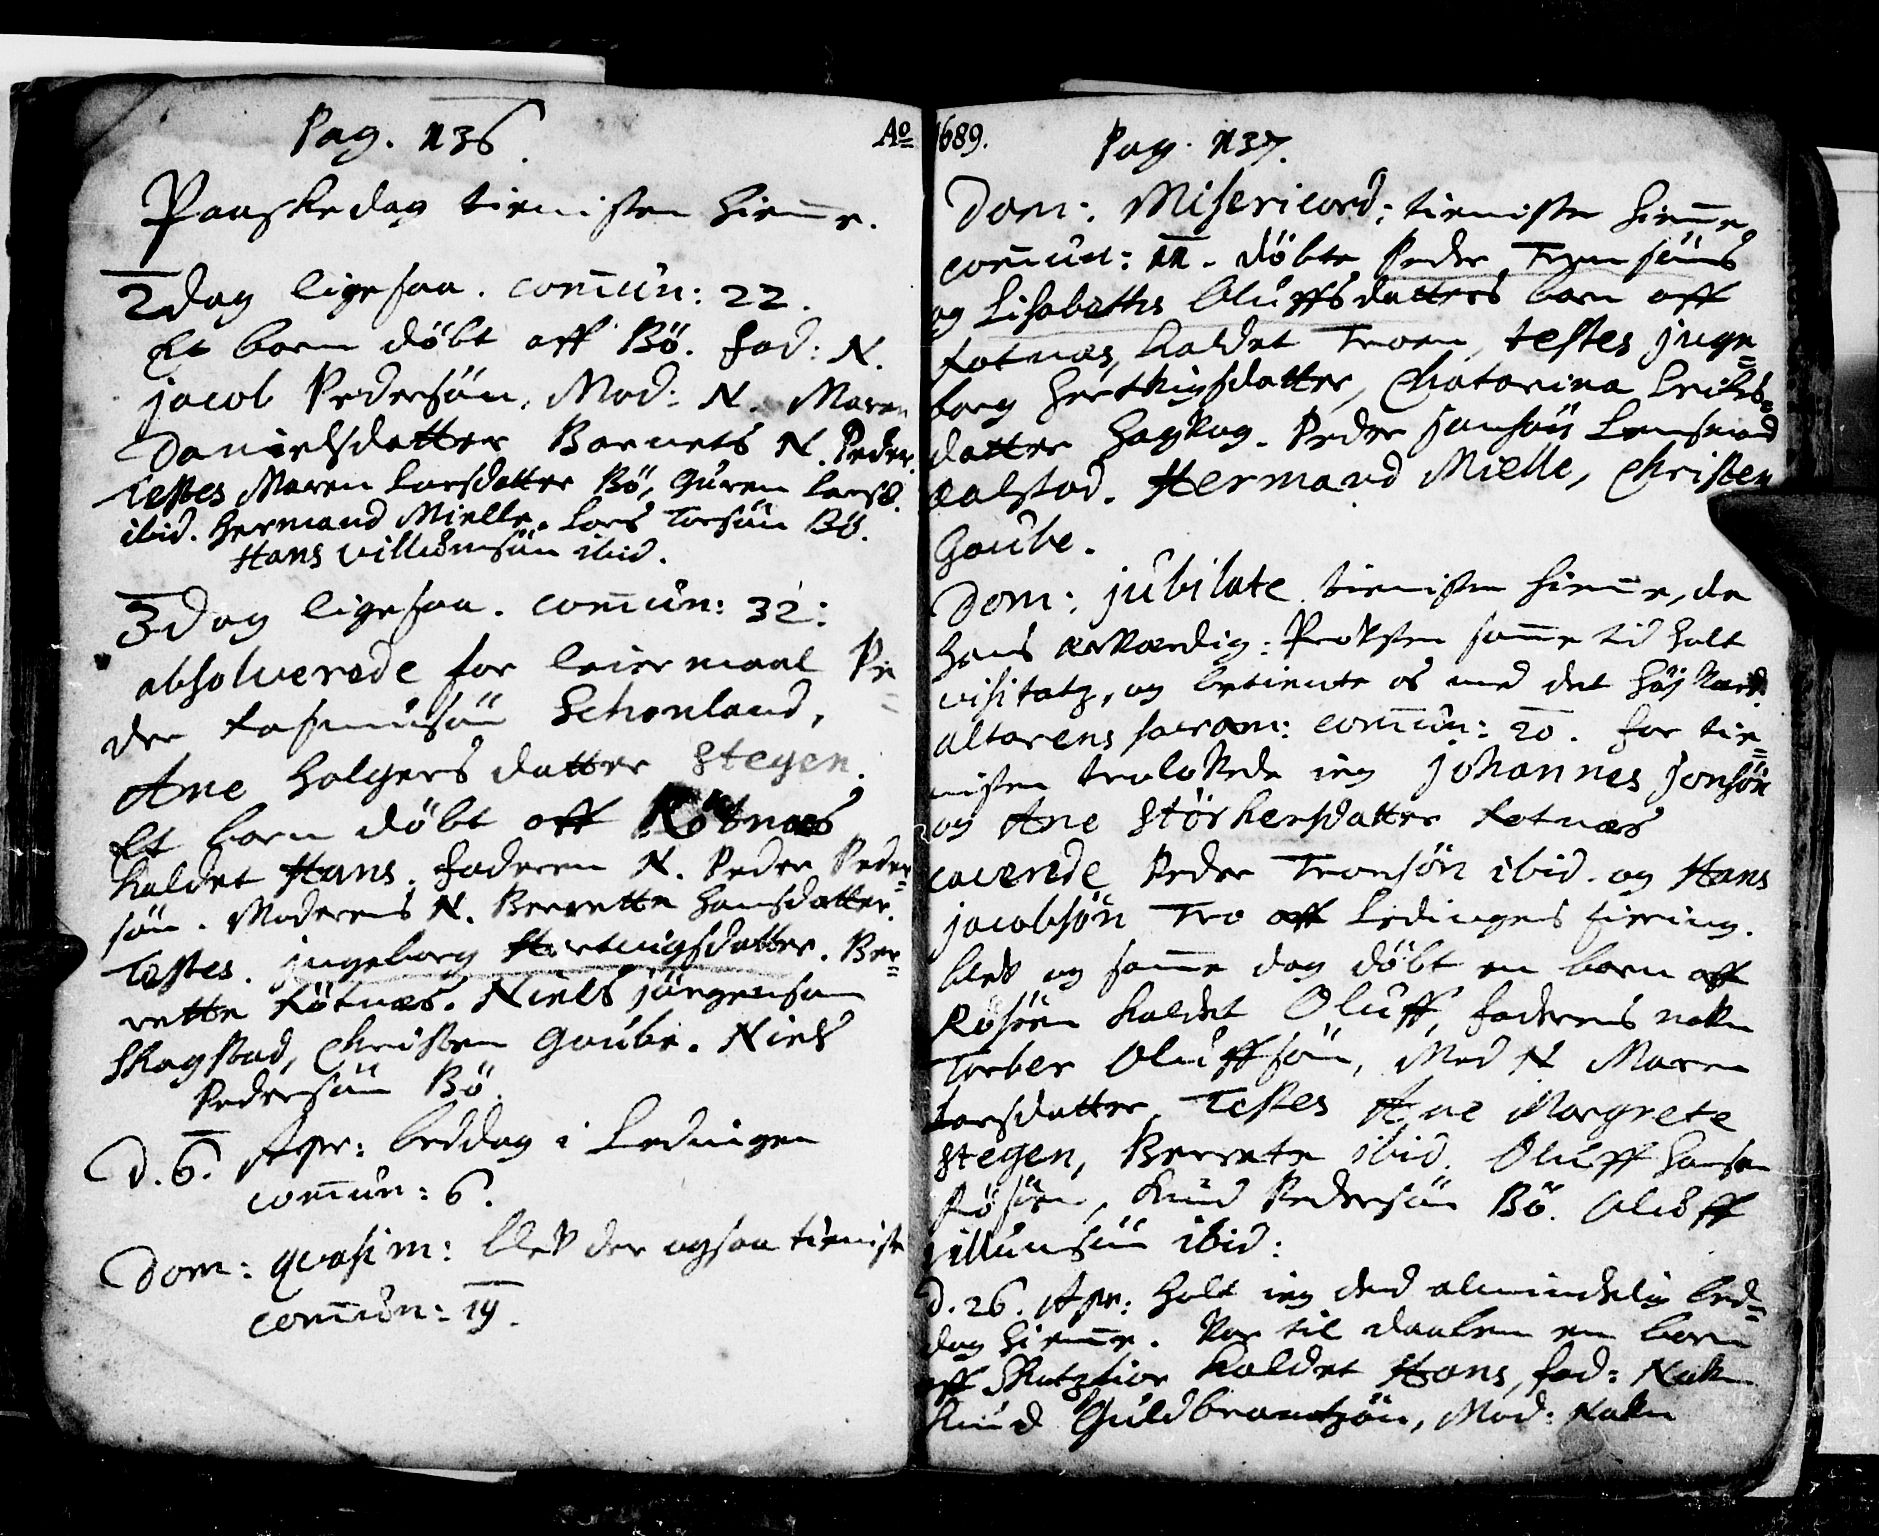 Pag. 136.
Paaskedag tienisten hieme.
2 dag ligesaa. comun: 22.
Et barn döbt aff Bö. fad: N.
jacob Pedersön, Mod: N. Maren
Danielsdatter Barnets N. Peder.
Testes Maren Larsdatter Bö, Guren Larsd.
ibid. Hermand Mielle. Lars Torsön Bö.
Hans Villumsön ibid.
3 dag ligesaa. comun: 32:
absolverede for leiermaal Pe
der Rasmusön Schonland,
Ane Holgersdatter Stegen.
Et barn döbt aff Rötnæs
kaldet Hans. faderen N. Peder Peder=
sön. Moderens N. Berrette Hansdatter.
Testes. jngeborg Hertuigsdatter. Ber=
rette Rötnæs. Niels jörgensen
Skagstad, Christen Gaube. Niels
Pedersön Bö.
D. 6. Apr: beddag i Ledingen
comun: 6.
Dom: quasim: blev der ogsaa tieniste
comun: 19.
Ao 1689.
Pag. 137.
Dom: Misericord: tienisten hieme
comun: 11. döbte Peder Tronsöns
og Lisabeths Oluffsdatters barn aff
Rotnæs, kaldet Tron, testes jnge=
borg Herthigsdatter, Chatarina Leids=
datter Hagkog. Peder Jonsön Lensmand
Ealstad. Hermand Mielle, Christen
Gaube.
Dom: jubilate tienisten hieme, da
hans ærværdig: Prosten same tid holt
visitatz, og betiente os med det höjværd.
altarens sacram: comun: 20. for tie=
nisten trolovede ieg johannes Jonsön
og Ane Störkersdatter Rotnæs
caverede Peder Tronsön ibid. og Hans
jacobsön Tro aff Ledingens fiering.
blev og same dag döbt en barn aff
Rösöen kaldet Oluff, faderens nafn
Torber Oluffsön, Mod N Maren
Larsdatter, Testes Ane Margrete
Stegen, Berrete ibid. Oluff Hansen
Rösöen, Knud Pedersön Bö. Oluff
jillumsön ibid:
D. 26. Apr: holt ieg dend almindelig bed=
dag hieme. Var til daaben en barn
aff kaldet Hans, fad: Nafn
Knud Guldbrantzön, Mod: Nafn